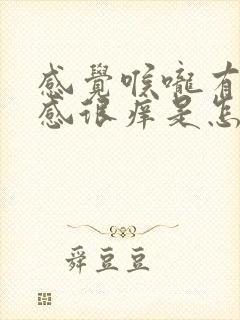 感覺喉嚨有
感很痒是怎
舜豆豆